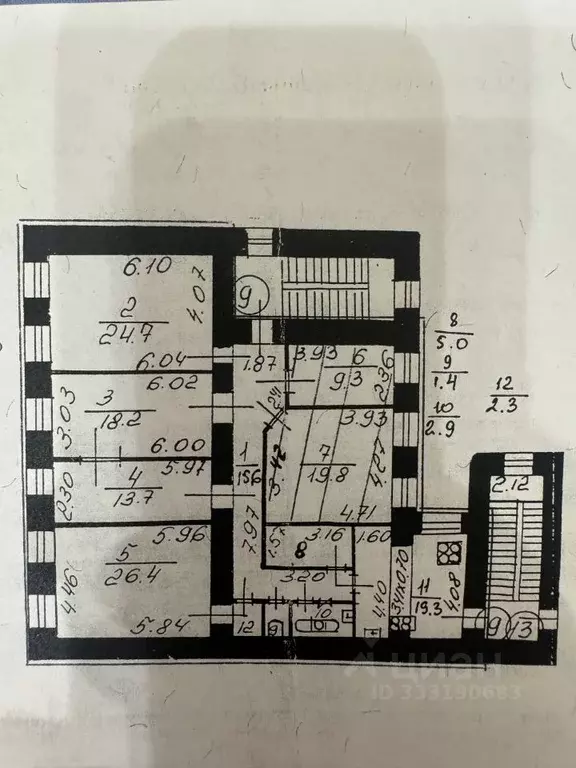 6.10
2
24.7
4.07
6.04
9
1.87
3.93
6
9.3
2.36
8
5.0
9
1.4
10
2.9
12
2.3
6.02
3
18.2
3.03
6.00
2.41
3.93
1
15.6
3.42
7
19.8
4.27
4.71
5.97
4
13.7
2.30
2.12
5.96
5
26.4
4.46
5.84
7.97
3.16
1.60
8
3.20
4.40
11
19.3
4.08
12
9
10
9
13
ЦИАН
ID 333190683